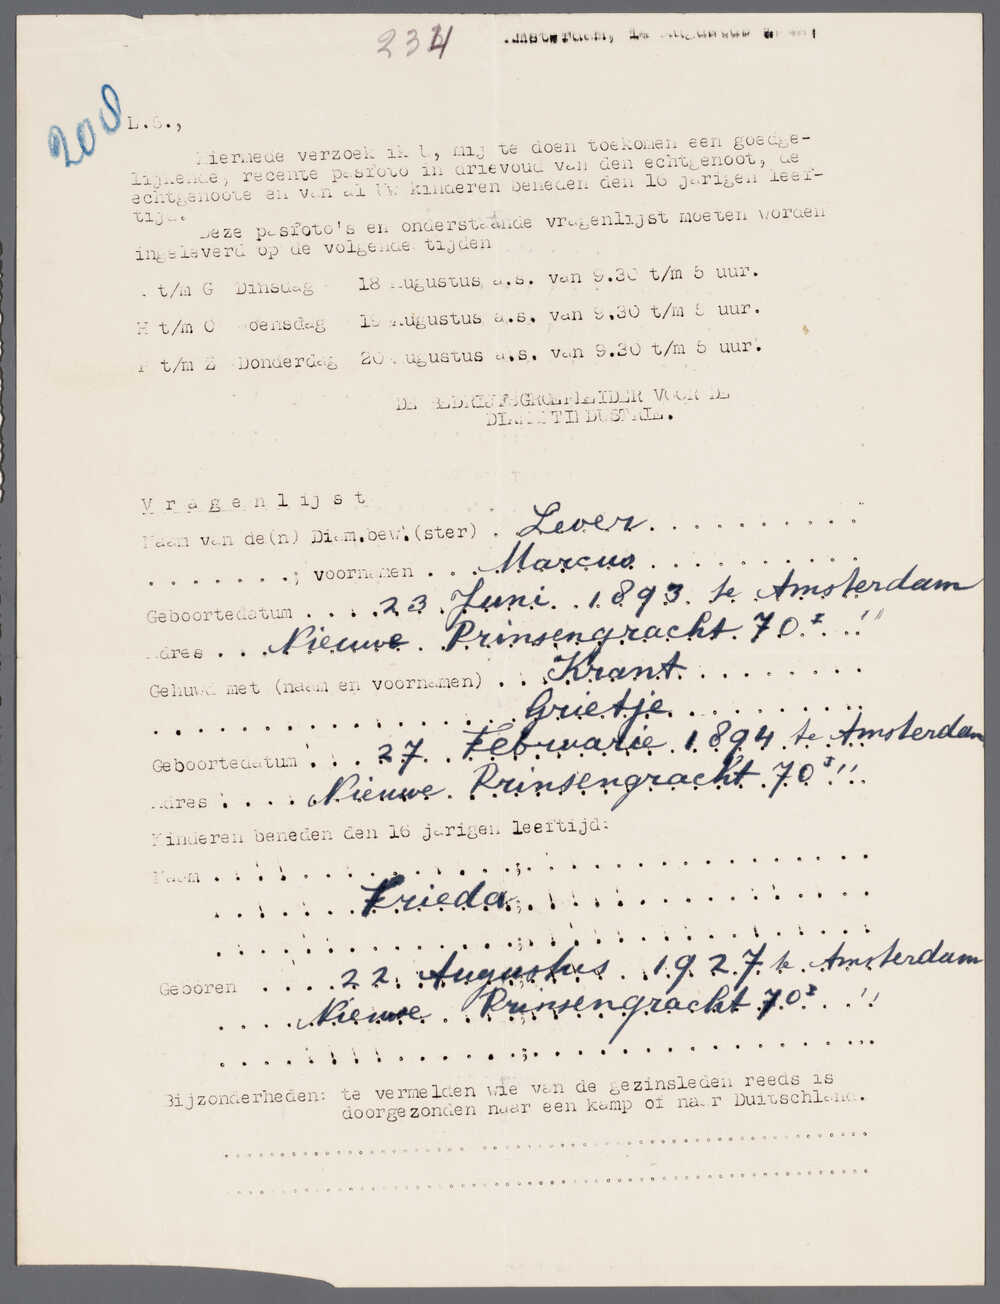 234
Amsterdam, 14 Augustus
208
L.S.,
Hiermede verzoek ik U, mij te doen toekomen een goedge-
lijkende, recente pasfoto in drievoud van den echtgenoot, de
echtgenoote en van al Uw kinderen beneden den 16 jarigen leef-
tijd.
Deze pasfoto's en onderstaande vragenlijst moeten worden
ingeleverd op de volgende tijden
t/m G Dinsdag 18 Augustus a.s. van 9.30 t/m 5 uur.
H t/m O Woensdag 19 Augustus a.s. van 9.30 t/m 5 uur.
P t/m Z Donderdag 20 Augustus a.s. van 9.30 t/m 5 uur.
DE BEDRIJFSGROEPLEIDER VOOR DE
DIAMANTINDUSTRIE.
Vragenlijst
Naam van de(n) Diam.bew.(ster) . Lever. . . . . . . . . .
. . . . . . .; voornamen . . . Marcus . . . . . . . . . .
Geboortedatum . . . . 23 Juni 1893 te Amsterdam
Adres . . . Nieuwe Prinsengracht 70 I . "
Gehuwd met (naam en voornamen) . . Krant . . . . . . . .
. . . . . . . . . . . . . . . . Grietje . . . . . . . . .
Geboortedatum . . . 27 Februarie 1894 te Amsterdam
Adres . . . . Nieuwe Prinsengracht 70 I "
Kinderen beneden den 16 jarigen leeftijd:
Naam . . . . . . . . . . . . . .; . . . . . . . . . . . . . .
. . . . . . . Frieda . . ; . . . . . . . . . . . . . .
. . . . . . . . . . . . . .; . . . . . . . . . . . . . .
Geboren . . . . 22 Augustus 1927 te Amsterdam
. . . . Nieuwe Prinsengracht 70 I . "
. . . . . . . . . . . . . .; . . . . . . . . . . . . . .
Bijzonderheden: te vermelden wie van de gezinsleden reeds is
doorgezonden naar een kamp of naar Duitschland.